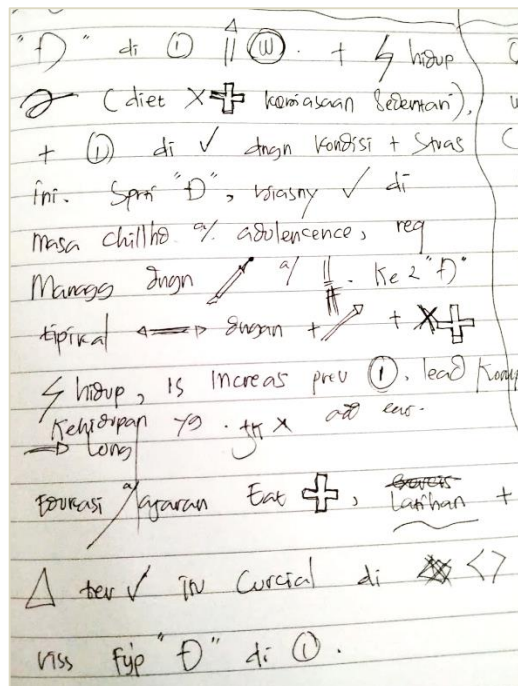 "Đ" di ① ⇈ Ⓦ. + ϟ hidup
(diet X ✚ kemiasaan Sedentari),
+ ① di ✓ dngn kondisi + Stras
ini. Sprti "Đ", biasny ✓ di
masa chillhd a/ adolencence, req
Manag dngn a/ . Ke 2 "Đ"
tipikal ⟷ dngan + ↗ + X ✚
ϟ hidup, is increas prev ①. lead
Kehidupan yg . jk X add
⇒ long
Edukasi a/ ajaran Eat ✚, Latihan +
Δ ter ✓ itu Curcial di < >
viss fyp "Đ" di ①.